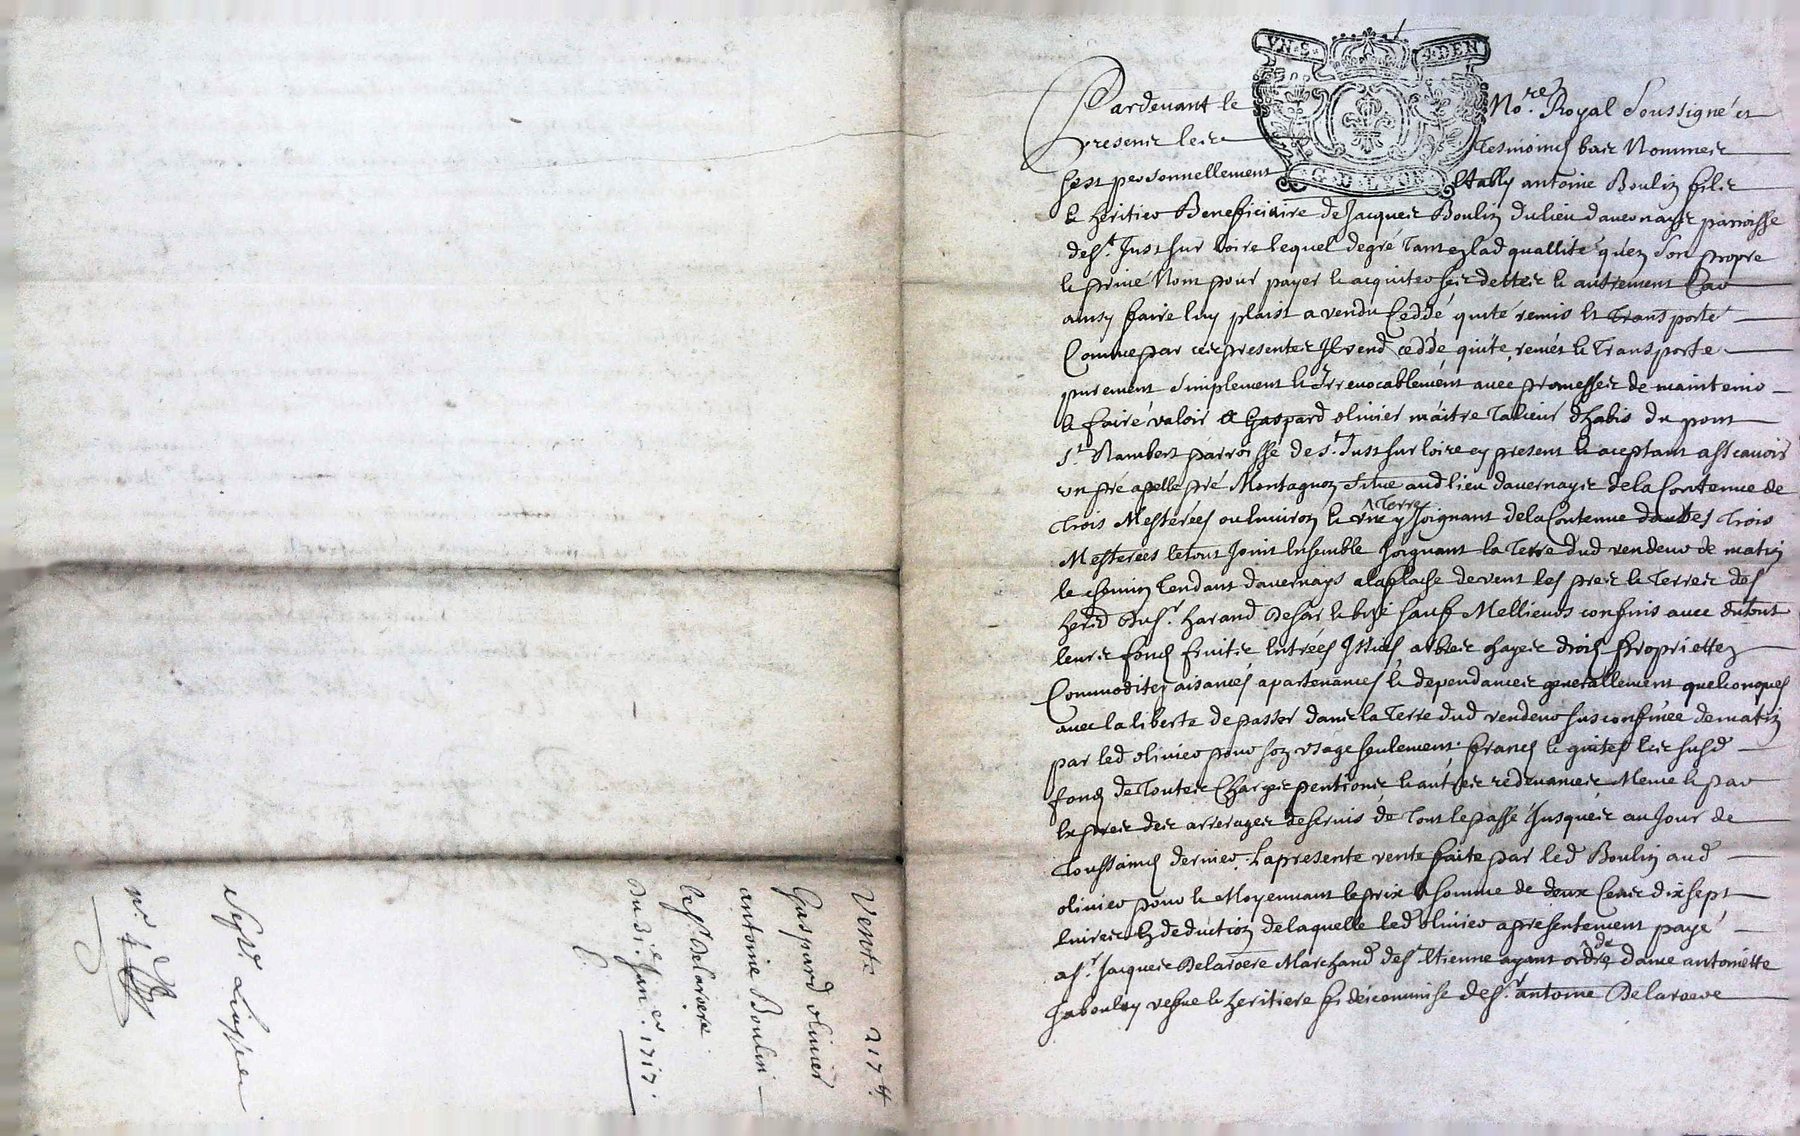 Vente 217 lt
Gaspard olinier
antoine Boulin
les s.r Delaroere
Du 31e Jan.er 1717.
n.o 4
VN S. 4 DEN
G. D LYON
Pardevant le No.re Royal Soussigné et
presence les Tesmoins bas Nommes
sest personnellement Etably antoine Boulin fils
& heritier Beneficiaire de Jacques Boulin du lieu davernays parroisse
de S.t Just sur loire lequel de gré Tant en lad quallité qu'en son propre
& privé Nom pour payer & acquiter ses dettes & autrement Car
ainsy faire luy plaist a vendu Ceddé quité remis et Transporté
Comme par ces presentes Il vend cedde quite remet & Transporte
purement Simplement & Irrevocablement avec promesses de maintenir
& faire valoir a Gaspard olinier maitre Talieur dhabis du pont
S.t Rambert parroisse de S.t Just sur loire cy present & aceptant asscavoir
un pré apellé pré Montagnon Situé aud lieu davernays de la Contenue de
Trois Mesterées ou Environ & une Terre y Joignant de la Contenue dautres Trois
Mesterées le tout Joint Ensemble Joignant la Terre dud vendeur de matin
le chemin Tendant davernays a la de vent les pres & Terres des
herd du s.r harand de soir & bize sauf Mellieurs confins avec du tout
leurs fonds fruits Entrées Issues arbres hayes droits Proprietez
Commoditez aisances apartenances & dependances generallement quelconques
avec la liberte de passer dans la Terre dud vendeur sus confinée de matin
par led olinier pour son usage seulement francs & quites les susd
fonds de Toutes Charges pentions & autres redevances Meme & par
Expres des arrerages de servis de Tout le passé Jusques au Jour de
Toussaints dernier. la presente vente faite par led Boulin aud
olinier pour & Moyennant le prix & somme de deux Cents dix sept
livres En deduction de laquelle led olinier a presentement payé
a s.r Jacques Delaroere Marchand de S.t Etienne ayant ordre de dame antoinette
Jaboulay vefve & heritiere fideicommise de s.r antoine Delaroere